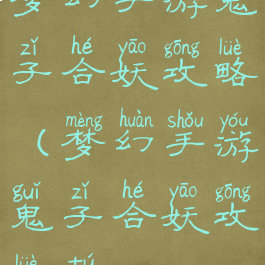 zǐ hé yāo gōng lüè
子合妖攻略
mèng huàn shǒu yóu
（梦幻手游
guǐ zǐ hé yāo gōng
鬼子合妖攻